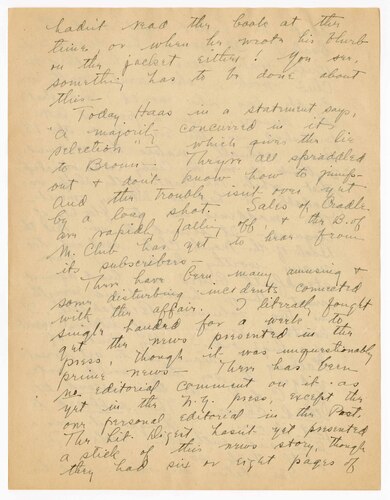 hadn't read the book at the
time, or when he wrote his blurb
on the jacket either! You see,
something has to be done about
this—
Today Haas in a statment says,
"a majority concurred in its
selection" — which gives the lie
to Broun—. They're all spraddled
out & don't know how to jump—
And the trouble isn't over yet
by a long shot. Sales of Cradle
are rapidly falling off & the B. of
M. Club has yet to hear from
its subscribers—
There have been many amusing &
some disturbing incidents connected
with the affair. I literally fought
single handed for a week to
get the news presented in the
press, though it was unquestionably
prime news— There has been
no editorial comment on it as
yet in the N.Y. press, except the
one personal editorial in the Post.
The Lit. Digest hasn't yet presented
a stick of this news story, though
they had six or eight pages of